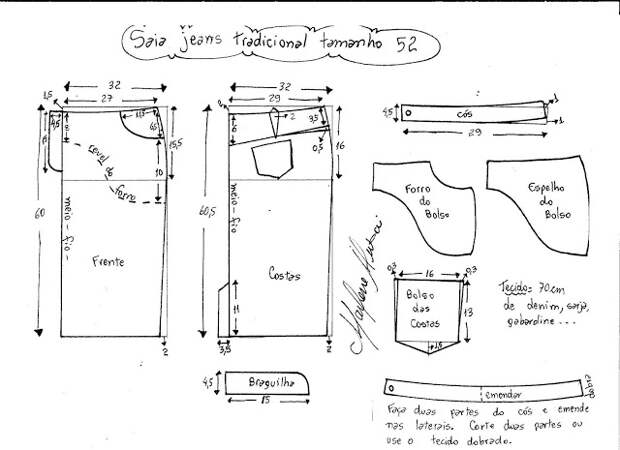 Saia jeans tradicional tamanho 52
32
27
1,5
4,5
8
11,5
6,5
15,5
10
Level do
forro
60
meio-fio-
Frente
2
32
29
2
6
2
3,5
0,5
16
60,5
meio-fio
Costas
11
3,5
2
4,5
Braguilha
15
4,5
cós
1
1
29
Forro
do
Bolso
Espelho
do
Bolso
Marlene Mukai
0,3
16
0,3
Bolso
das
Costas
13
1,5
Tecido= 70cm
de denim, sarja,
gabardine...
emendar
dobra
Faça duas partes do cós e emende
nas laterais. Corte duas partes ou
use o tecido dobrado.